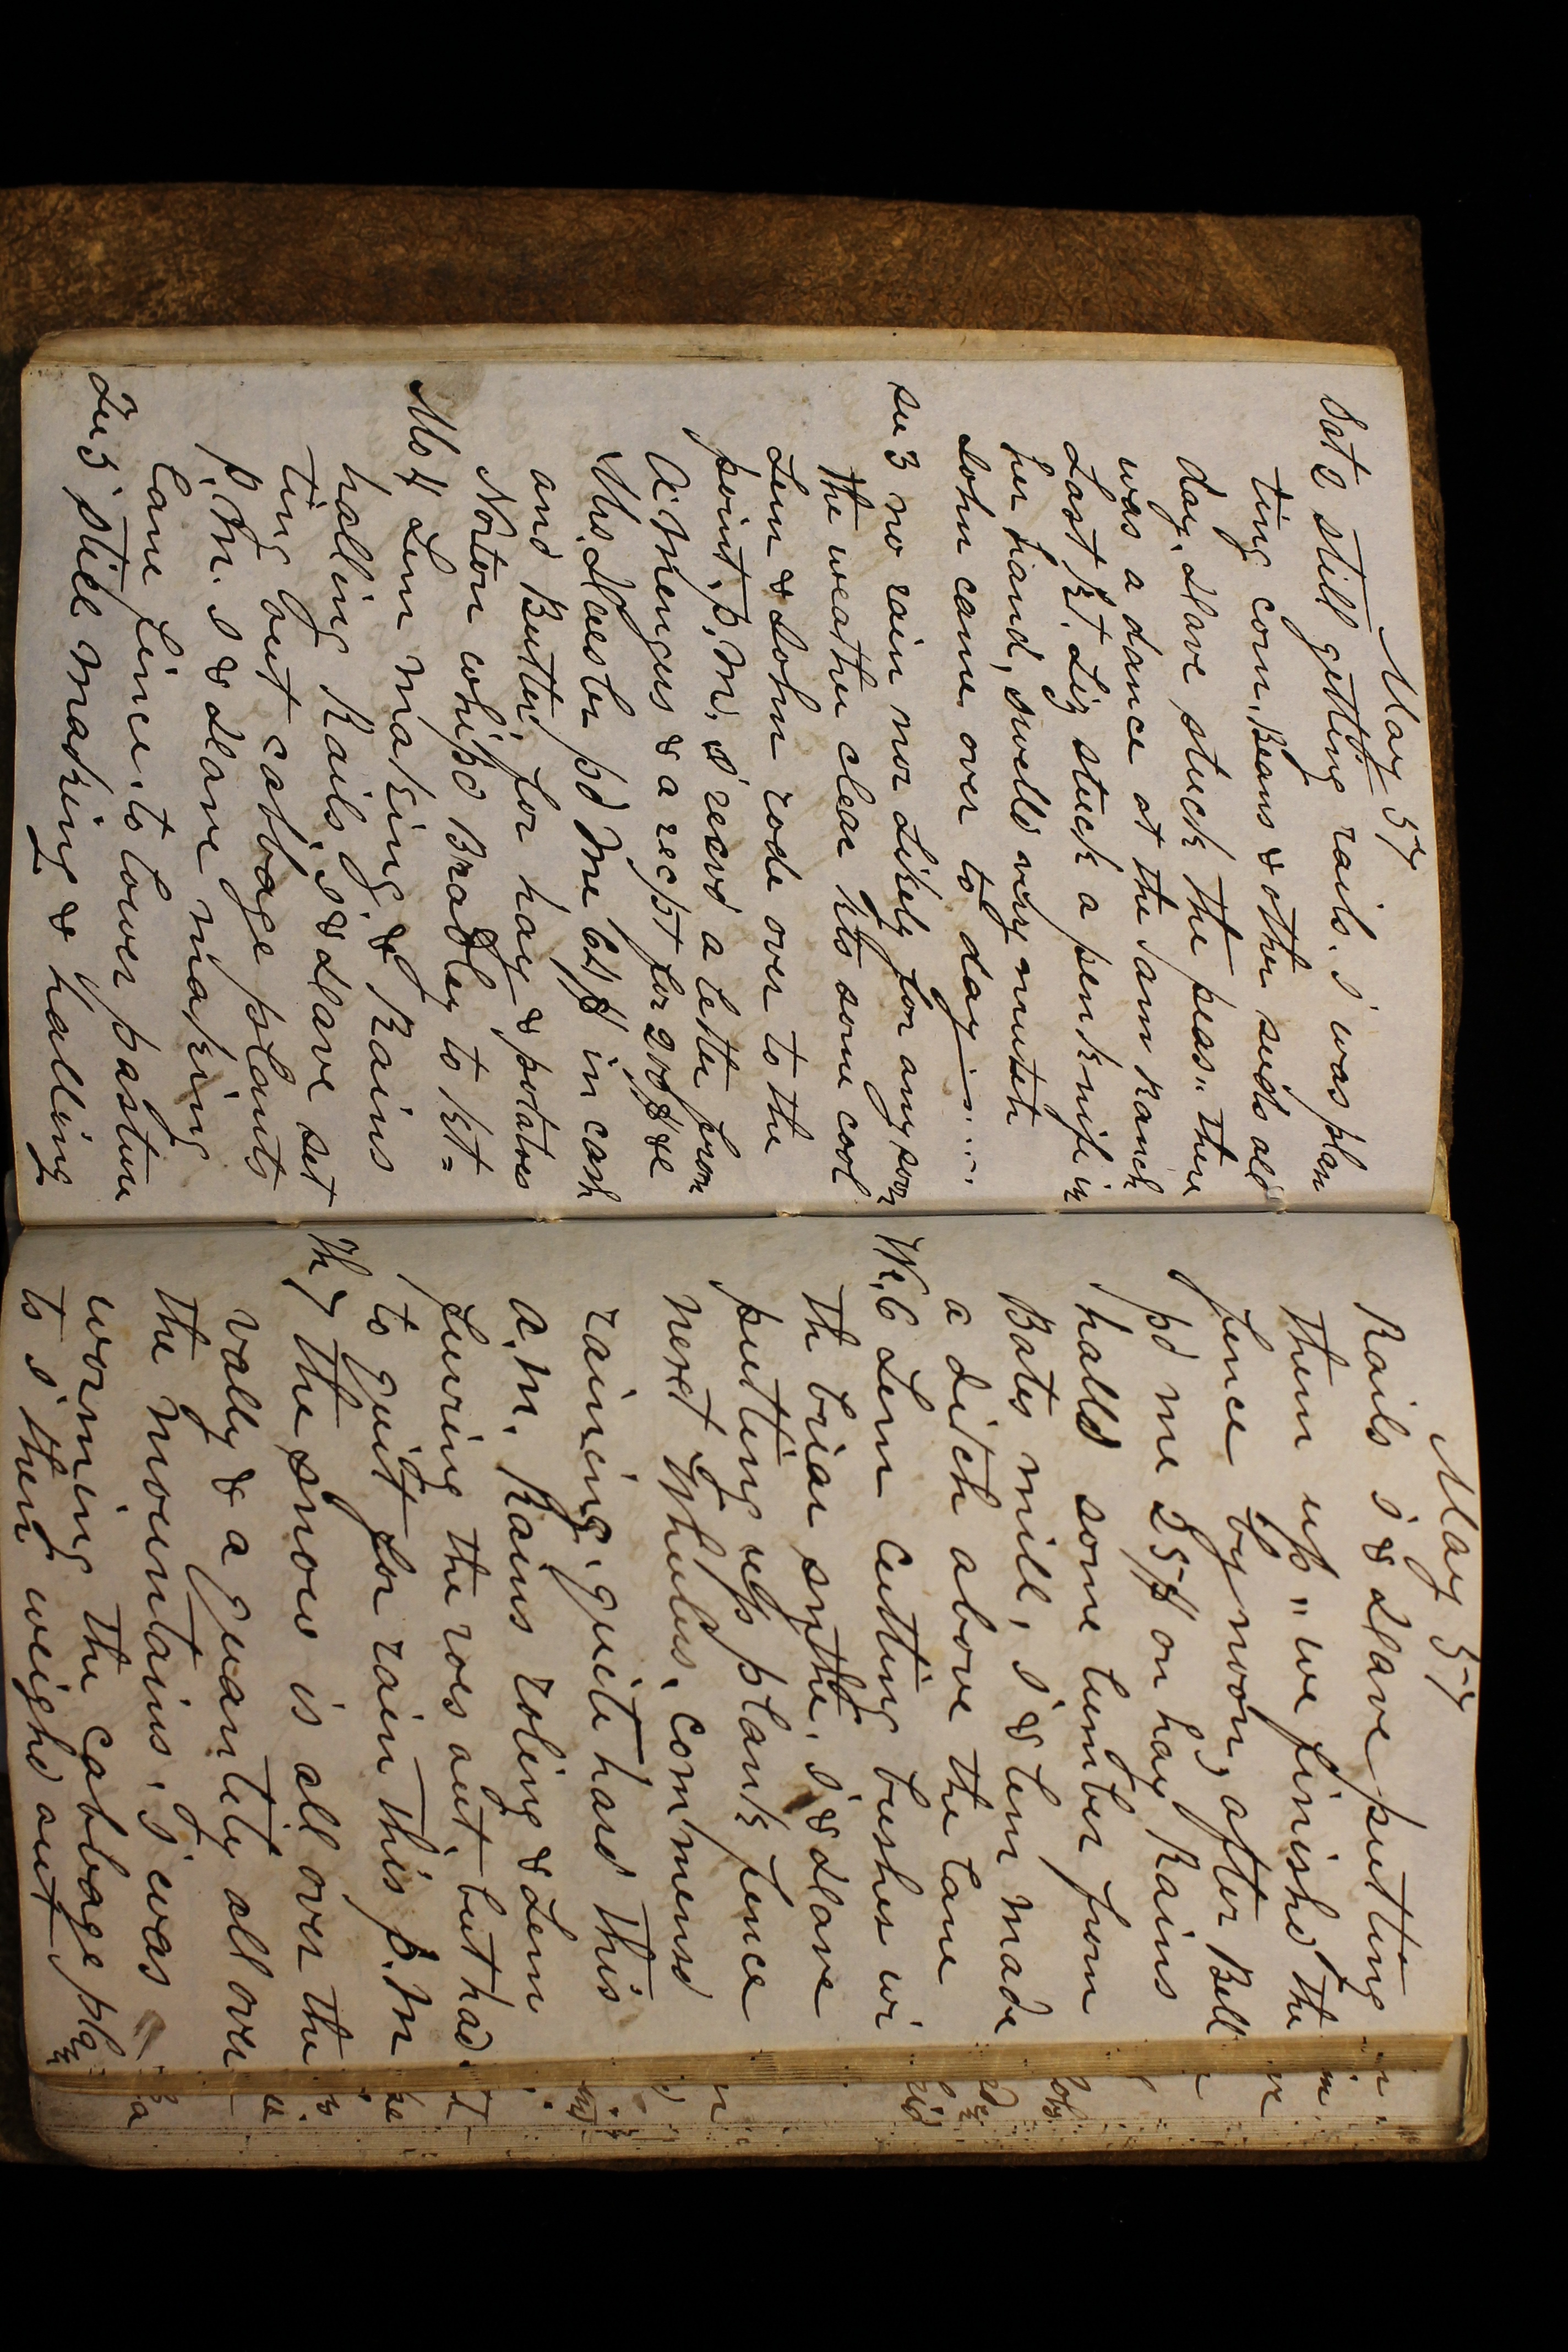 May 57
Sat 2 still getting rails. I was plan
ting corn, Beans & other seeds all
day. Dave stuck the peas " there
was a dance at the Sam Ranch
Last kt. Liz stuck a penknife in
her hand, swelld very mutch
John came over to day
su 3 no rain nor Likely for any soon
the weather clear kts some cool
Lem & John rode over to the
point, p.M. I recvd a letter from
A. Mengus & a recpt for 200$ &c
Mrs. pd Me 64$ in cash
and Butter, for hay & potatoes
Norton whipd Bradley to kt=
Mo 4 Lem making & Rains
halling Rails, I & Dave set
ting out cabbage plants
p.M. I & Dave making
lane fince to lower pasture
Tu 5 still making & halling
May 57
Rails I & Dave putting
them up " we finishd the
fence by noon, after Bell
pd me 25$ on hay Rains
halld some lumber from
Bates mill, I & Lem made
a ditch above the lane
We. 6 Lem cutting bushes wi
th briar sythe, I & Dave
putting up plank fence
next Wheelers, commensd
raining, quite hard this
A.M. Rains roling & Lem
furing the roes out, but had
to quit for rain this p.M
Th 7 the snow is all over the
vally & a quantity all over
the mountains, I was
worming the cabbage plan
ts I then weighd out